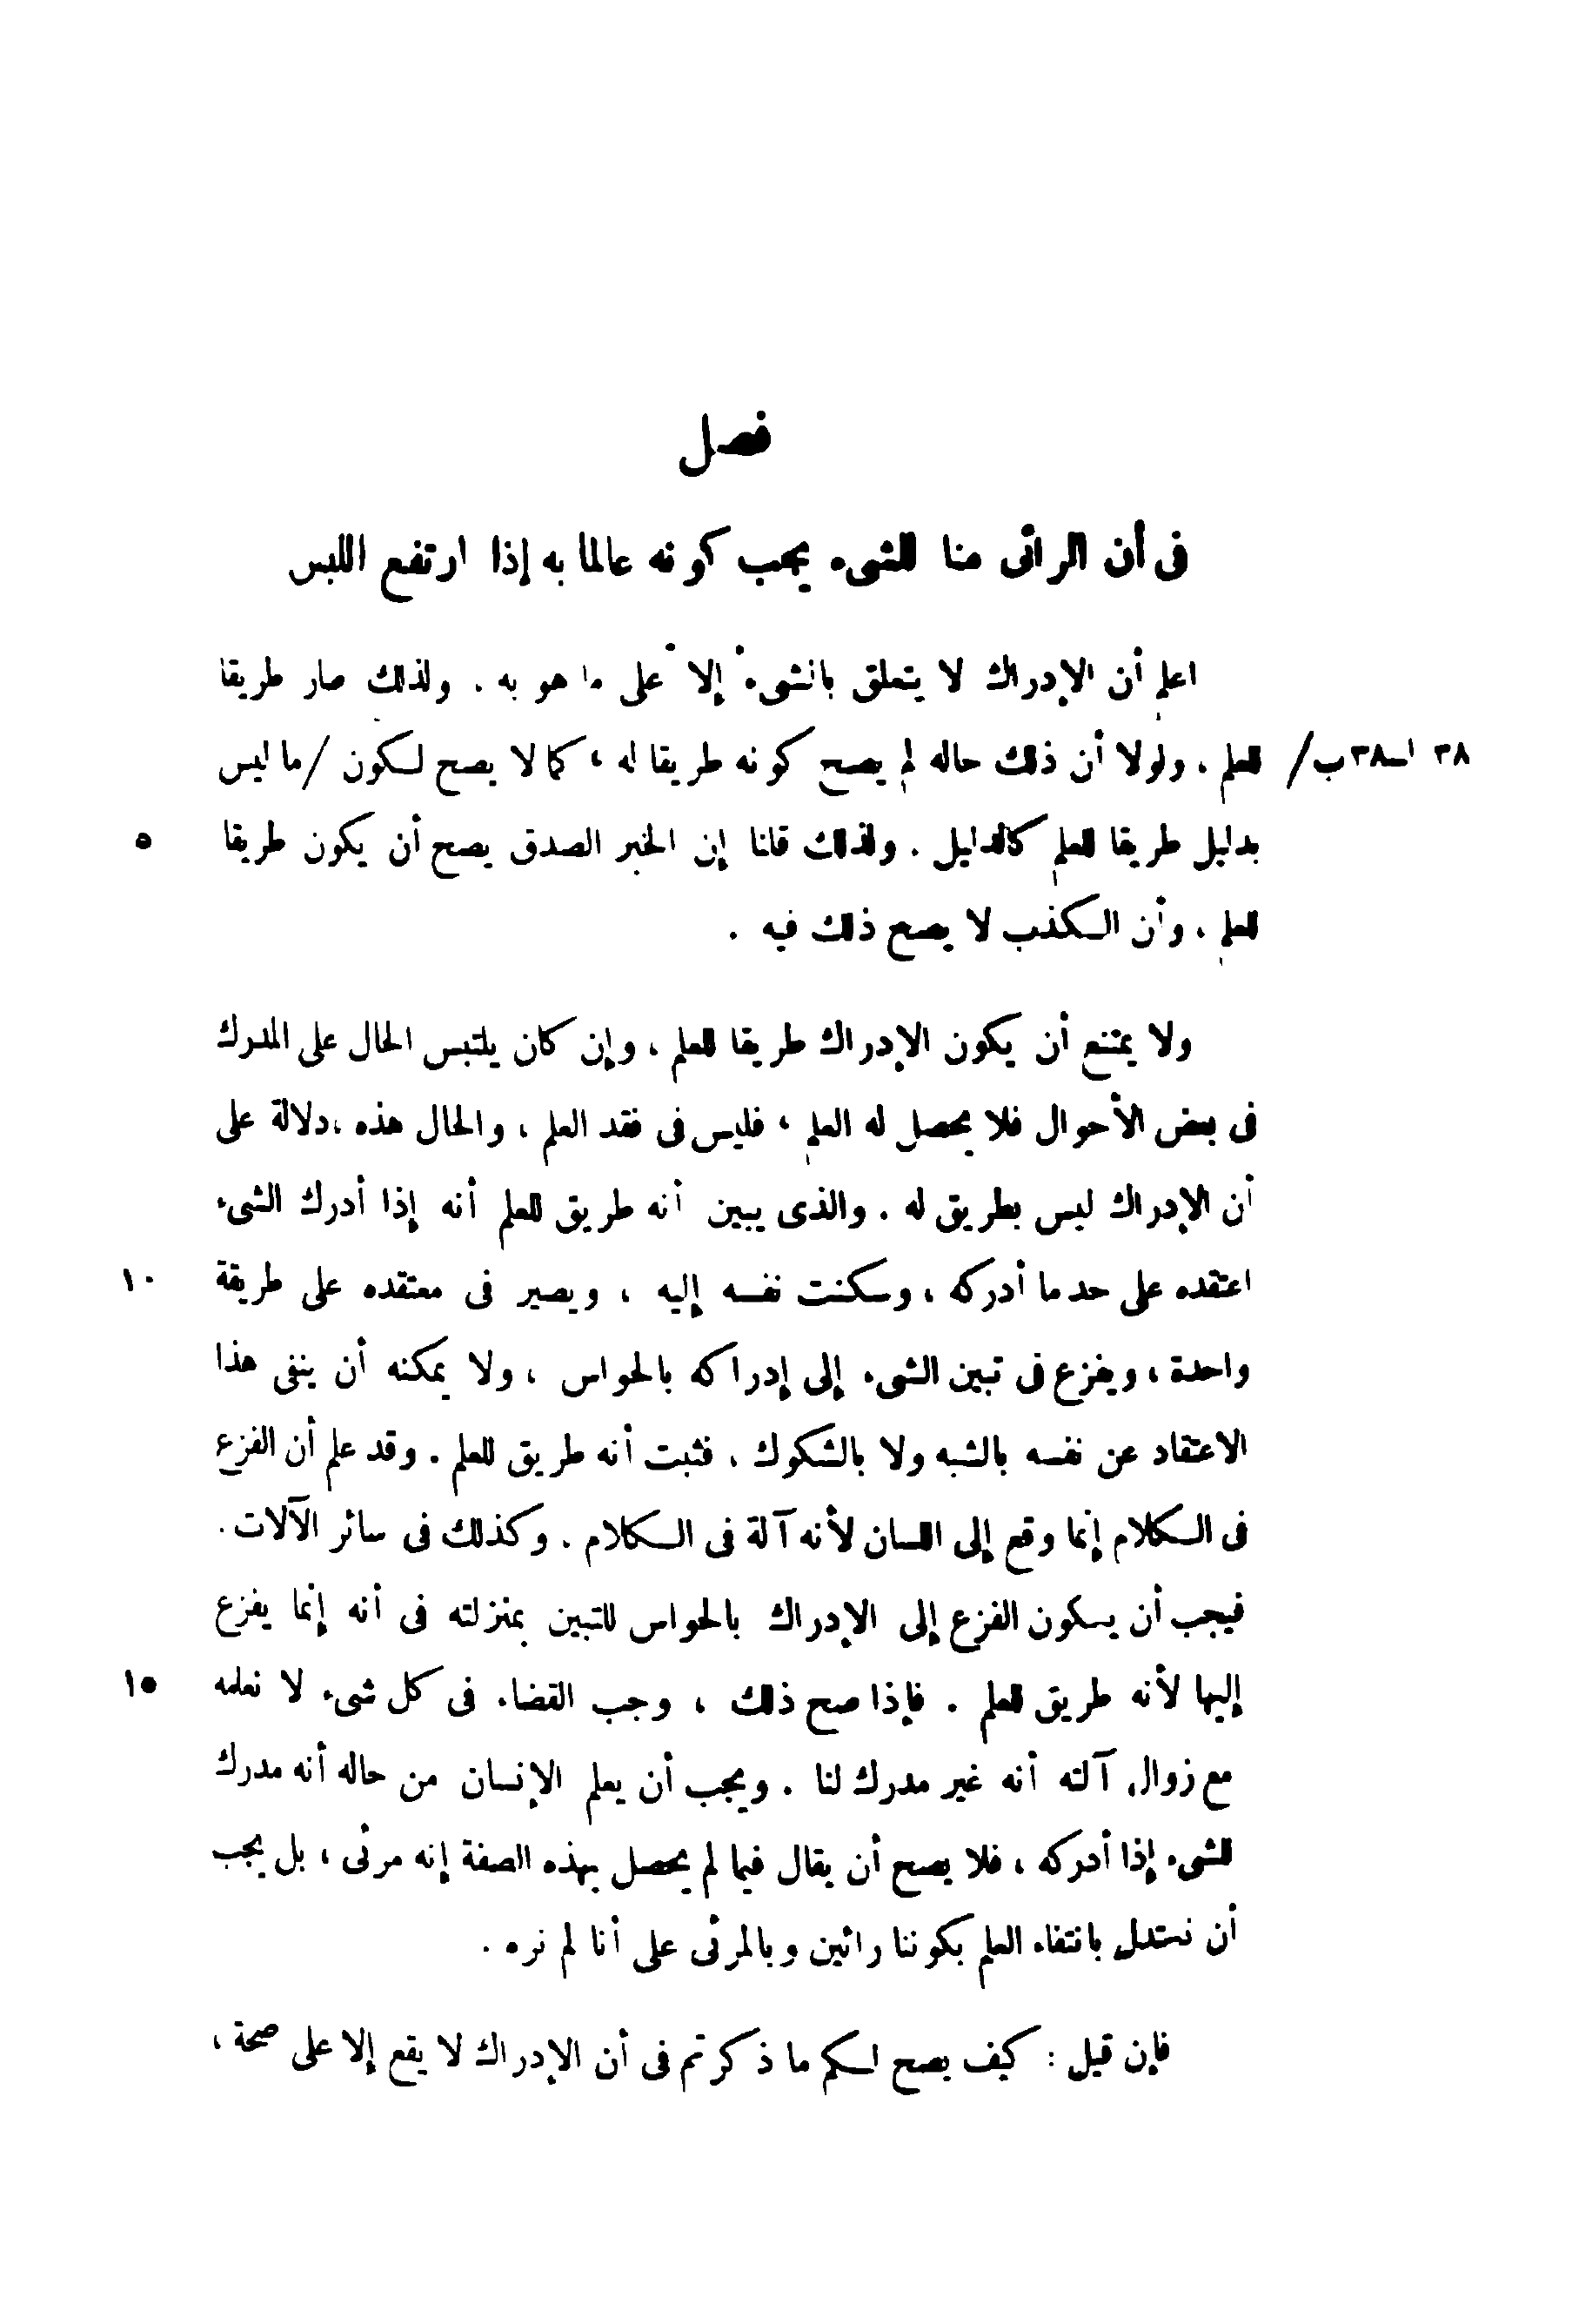 فصل
فى أن الرائى منا للشىء يجب كونه عالما به إذا ارتفع اللبس
اعلم أن الإدراك لا يتعلق بالشىء إلا على ما هو به . ولذلك صار طريقا
٣٨ ا ــ ٣٨ ب / للعلم . ولولا أن ذلك حاله لم يصح كونه طريقا له ، كما لا يصح لكون / ما ليس
بدليل طريقا للعلم كالدليل . ولذلك قلنا إن الخبر الصدق يصح أن يكون طريقا ٥
للعلم ، وأن الكذب لا يصح ذلك فيه .
ولا يمتنع أن يكون الإدراك طريقا للعلم ، وإن كان يلتبس الحال على المدرك
فى بعض الأحوال فلا يحصل له العلم ، فليس فى فقد العلم ، والحال هذه ، دلالة على
أن الإدراك ليس بطريق له . والذى يبين أنه طريق للعلم أنه إذا أدرك الشىء
اعتقده على حد ما أدركه ، وسكنت نفسه إليه ، ويصير فى معتقده على طريقة ١٠
واحدة ، ويفزع فى تبين الشىء إلى إدراكه بالحواس ، ولا يمكنه أن ينفى هذا
الاعتقاد عن نفسه بالشبه ولا بالشكوك ، فثبت أنه طريق للعلم . وقد علم أن الفزع
فى الكلام إنما وقع إلى اللسان لأنه آلة فى الكلام . وكذلك فى سائر الآلات .
فيجب أن يكون الفزع إلى الإدراك بالحواس للتبين بمنزلته فى أنه إنما يفزع
إليها لأنه طريق للعلم . فإذا صح ذلك ، وجب القضاء فى كل شىء لا نعلمه ١٥
مع زوال آلته أنه غير مدرك لنا . ويجب أن يعلم الإنسان من حاله أنه مدرك
للشىء إذا أدركه ، فلا يصح أن يقال فيما لم يحصل بهذه الصفة إنه مرئى ، بل يجب
أن نستدل بانتفاء العلم بكوننا رائين وبالمرئى على أنا لم نره .
فإن قيل : كيف يصح لكم ما ذكرتم فى أن الإدراك لا يقع إلا على صحة ،